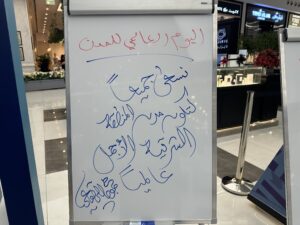 اليوم العالمي للمدن
نسعى جميعاً
لتكون مدن المنطقة
الشرقية الأجمل
عالمياً